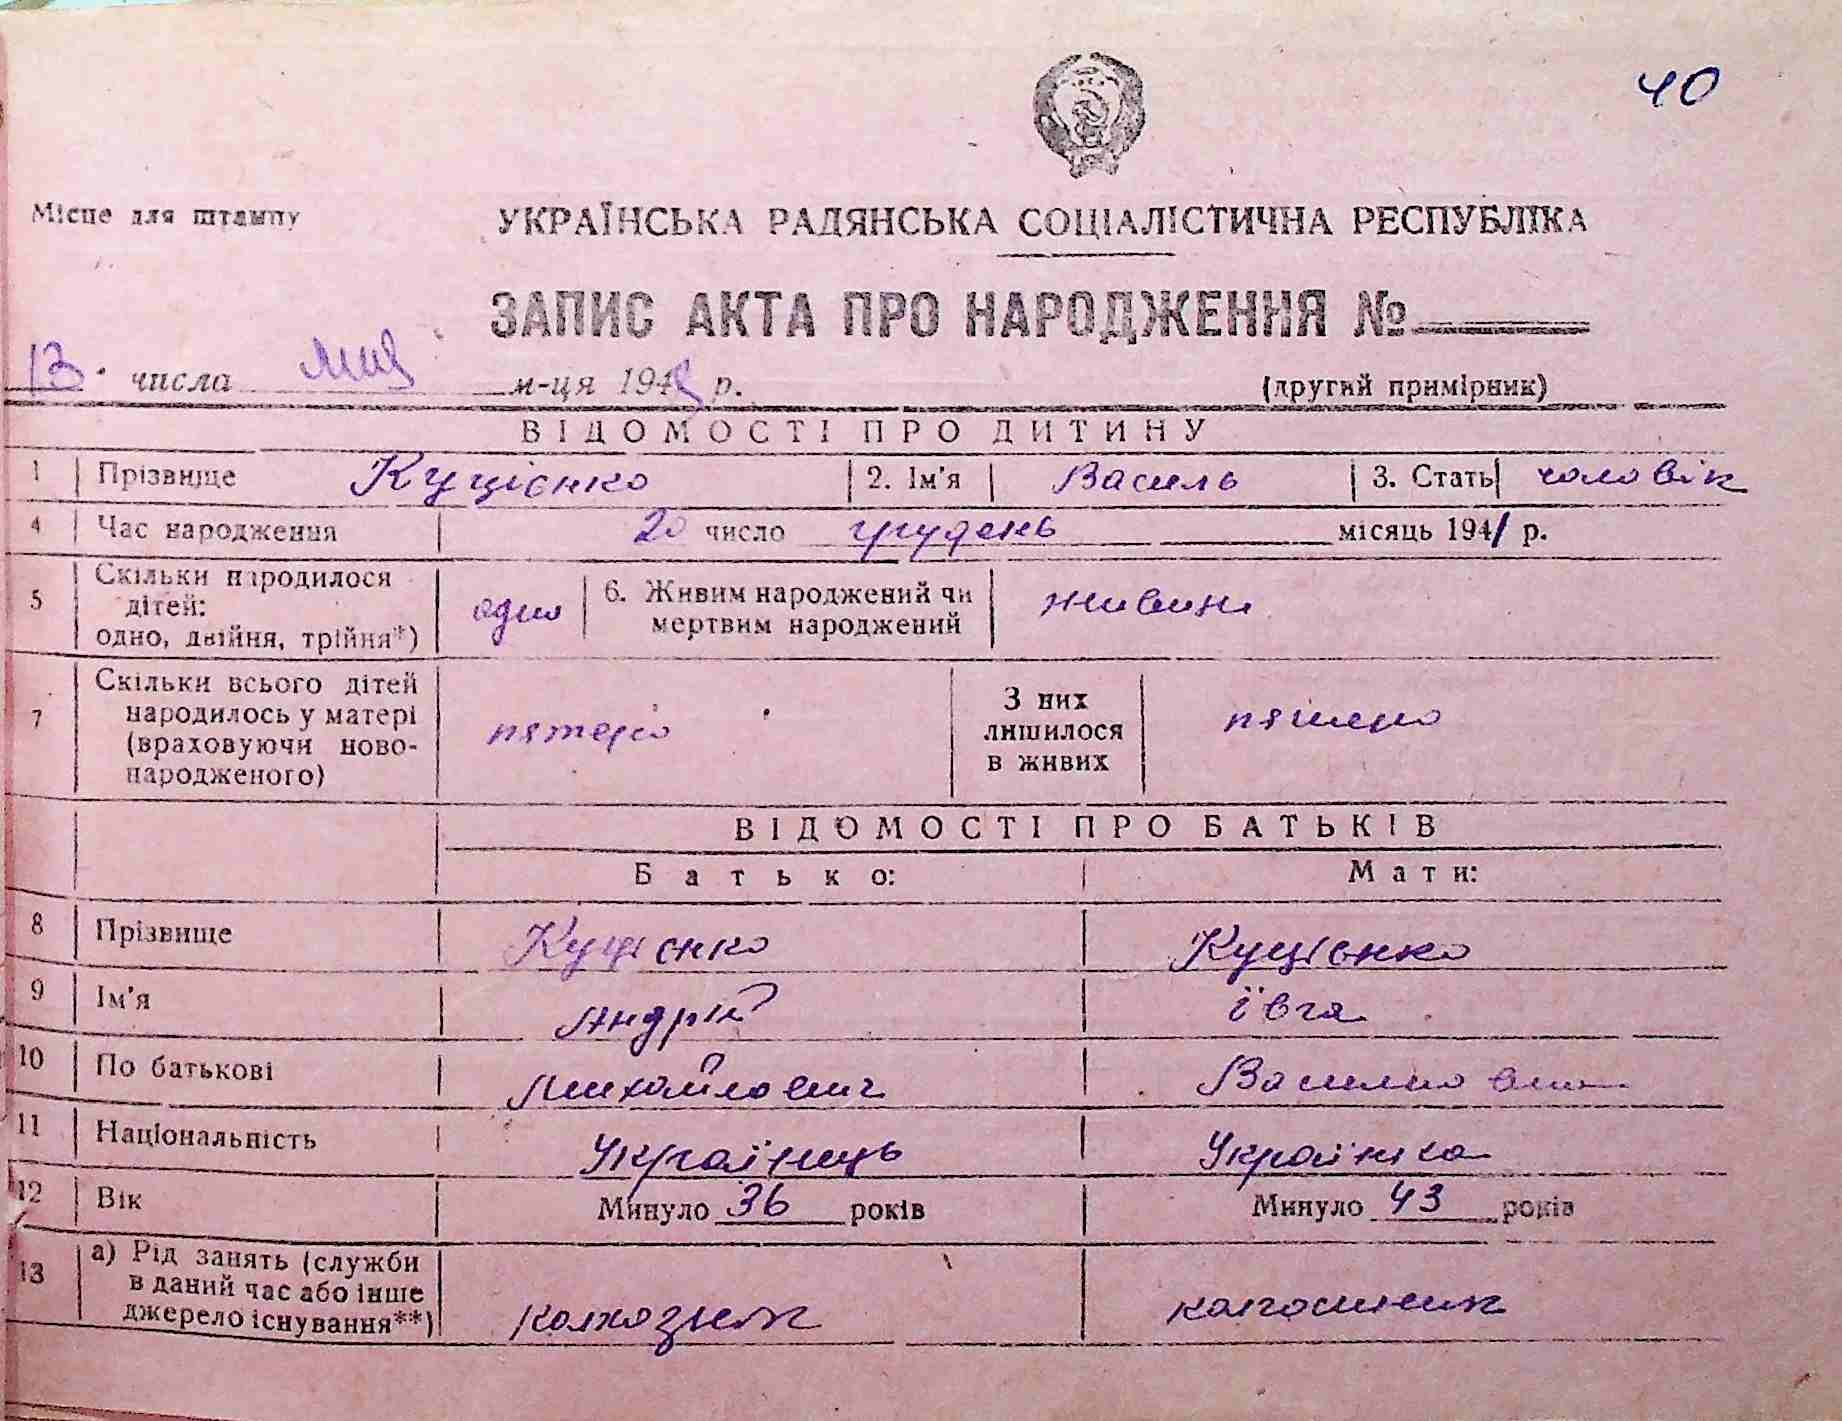 40
Місце для штампу
УКРАЇНСЬКА РАДЯНСЬКА СОЦІАЛІСТИЧНА РЕСПУБЛІКА
ЗАПИС АКТА ПРО НАРОДЖЕННЯ №
13 числа мая м-ця 194 р. (другий примірник)
ВІДОМОСТІ ПРО ДИТИНУ
1 Прізвище Куцієнко 2. Ім'я Василь 3. Стать чоловік
4 Час народження 20 число грудень місяць 1941 р.
5 Скільки народилося дітей: одно, двійня, трійня*) одно 6. Живим народжений чи мертвим народжений живим
7 Скільки всього дітей народилось у матері (враховуючи ново-народженого) пятеро З них лишилося в живих пятеро
ВІДОМОСТІ ПРО БАТЬКІВ
Батько: Мати:
8 Прізвище Куцієнко Куцієнко
9 Ім'я Андрій Ївга
10 По батькові Михайлович Василиовна
11 Національність Українець Українка
12 Вік Минуло 36 років Минуло 43 років
13 а) Рід занять (служби в даний час або інше джерело існування**) колхозник